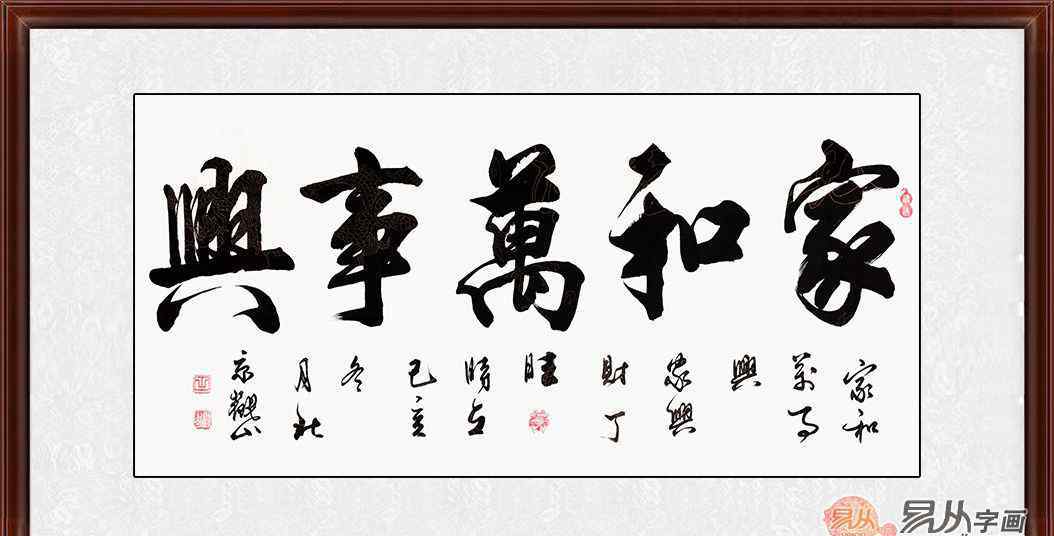 家和萬事興
家和
萬事
興
家興
財丁
旺
時在
己亥
冬
月於
京
易从 易从字画